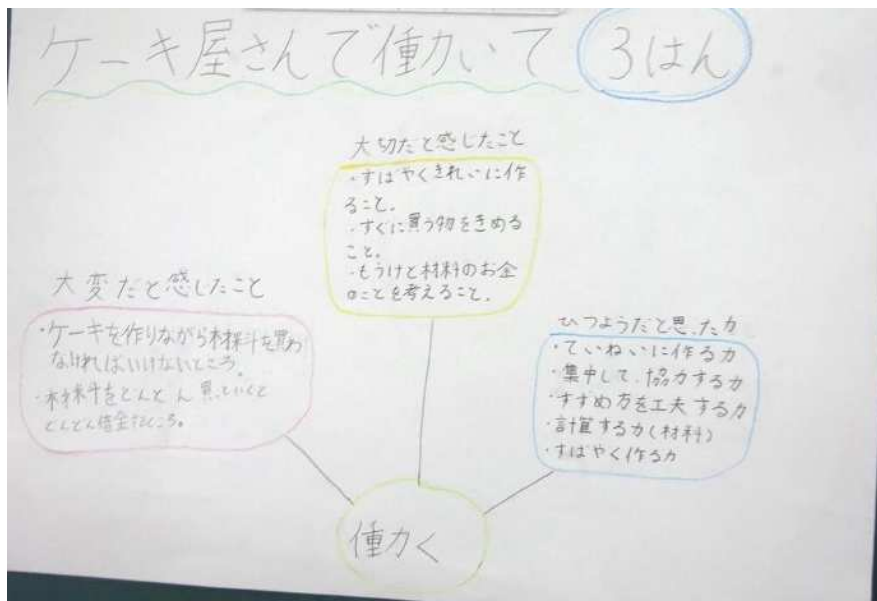 ケーキ屋さんで働いて
3はん
大切だと感じたこと
・すばやくきれいに作
ること。
・すぐに買う物をきめる
こと。
・もうけと材料のお金
のことを考えること。
大変だと感じたこと
・ケーキを作りながら材料を買わ
なければいけないところ。
・材料をどんどん買っていくと
どんどん借金なところ。
ひつようだと思った力
・ていねいに作る力
・集中して、協力する力
・すすめ方を工夫する力
・計算する力(材料)
・すばやく作る力
働く